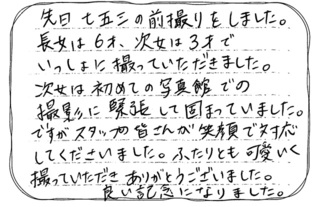 先日 七五三の前撮りをしました。
長女は6才、次女は3才で
いっしょに撮っていただきました。
次女は初めての写真館での
撮影に緊張して固まっていました。
ですがスタッフの皆さんが笑顔で対応
してくださいました。ふたりとも可愛いく
撮っていただきありがとうございました。
良い記念になりました。